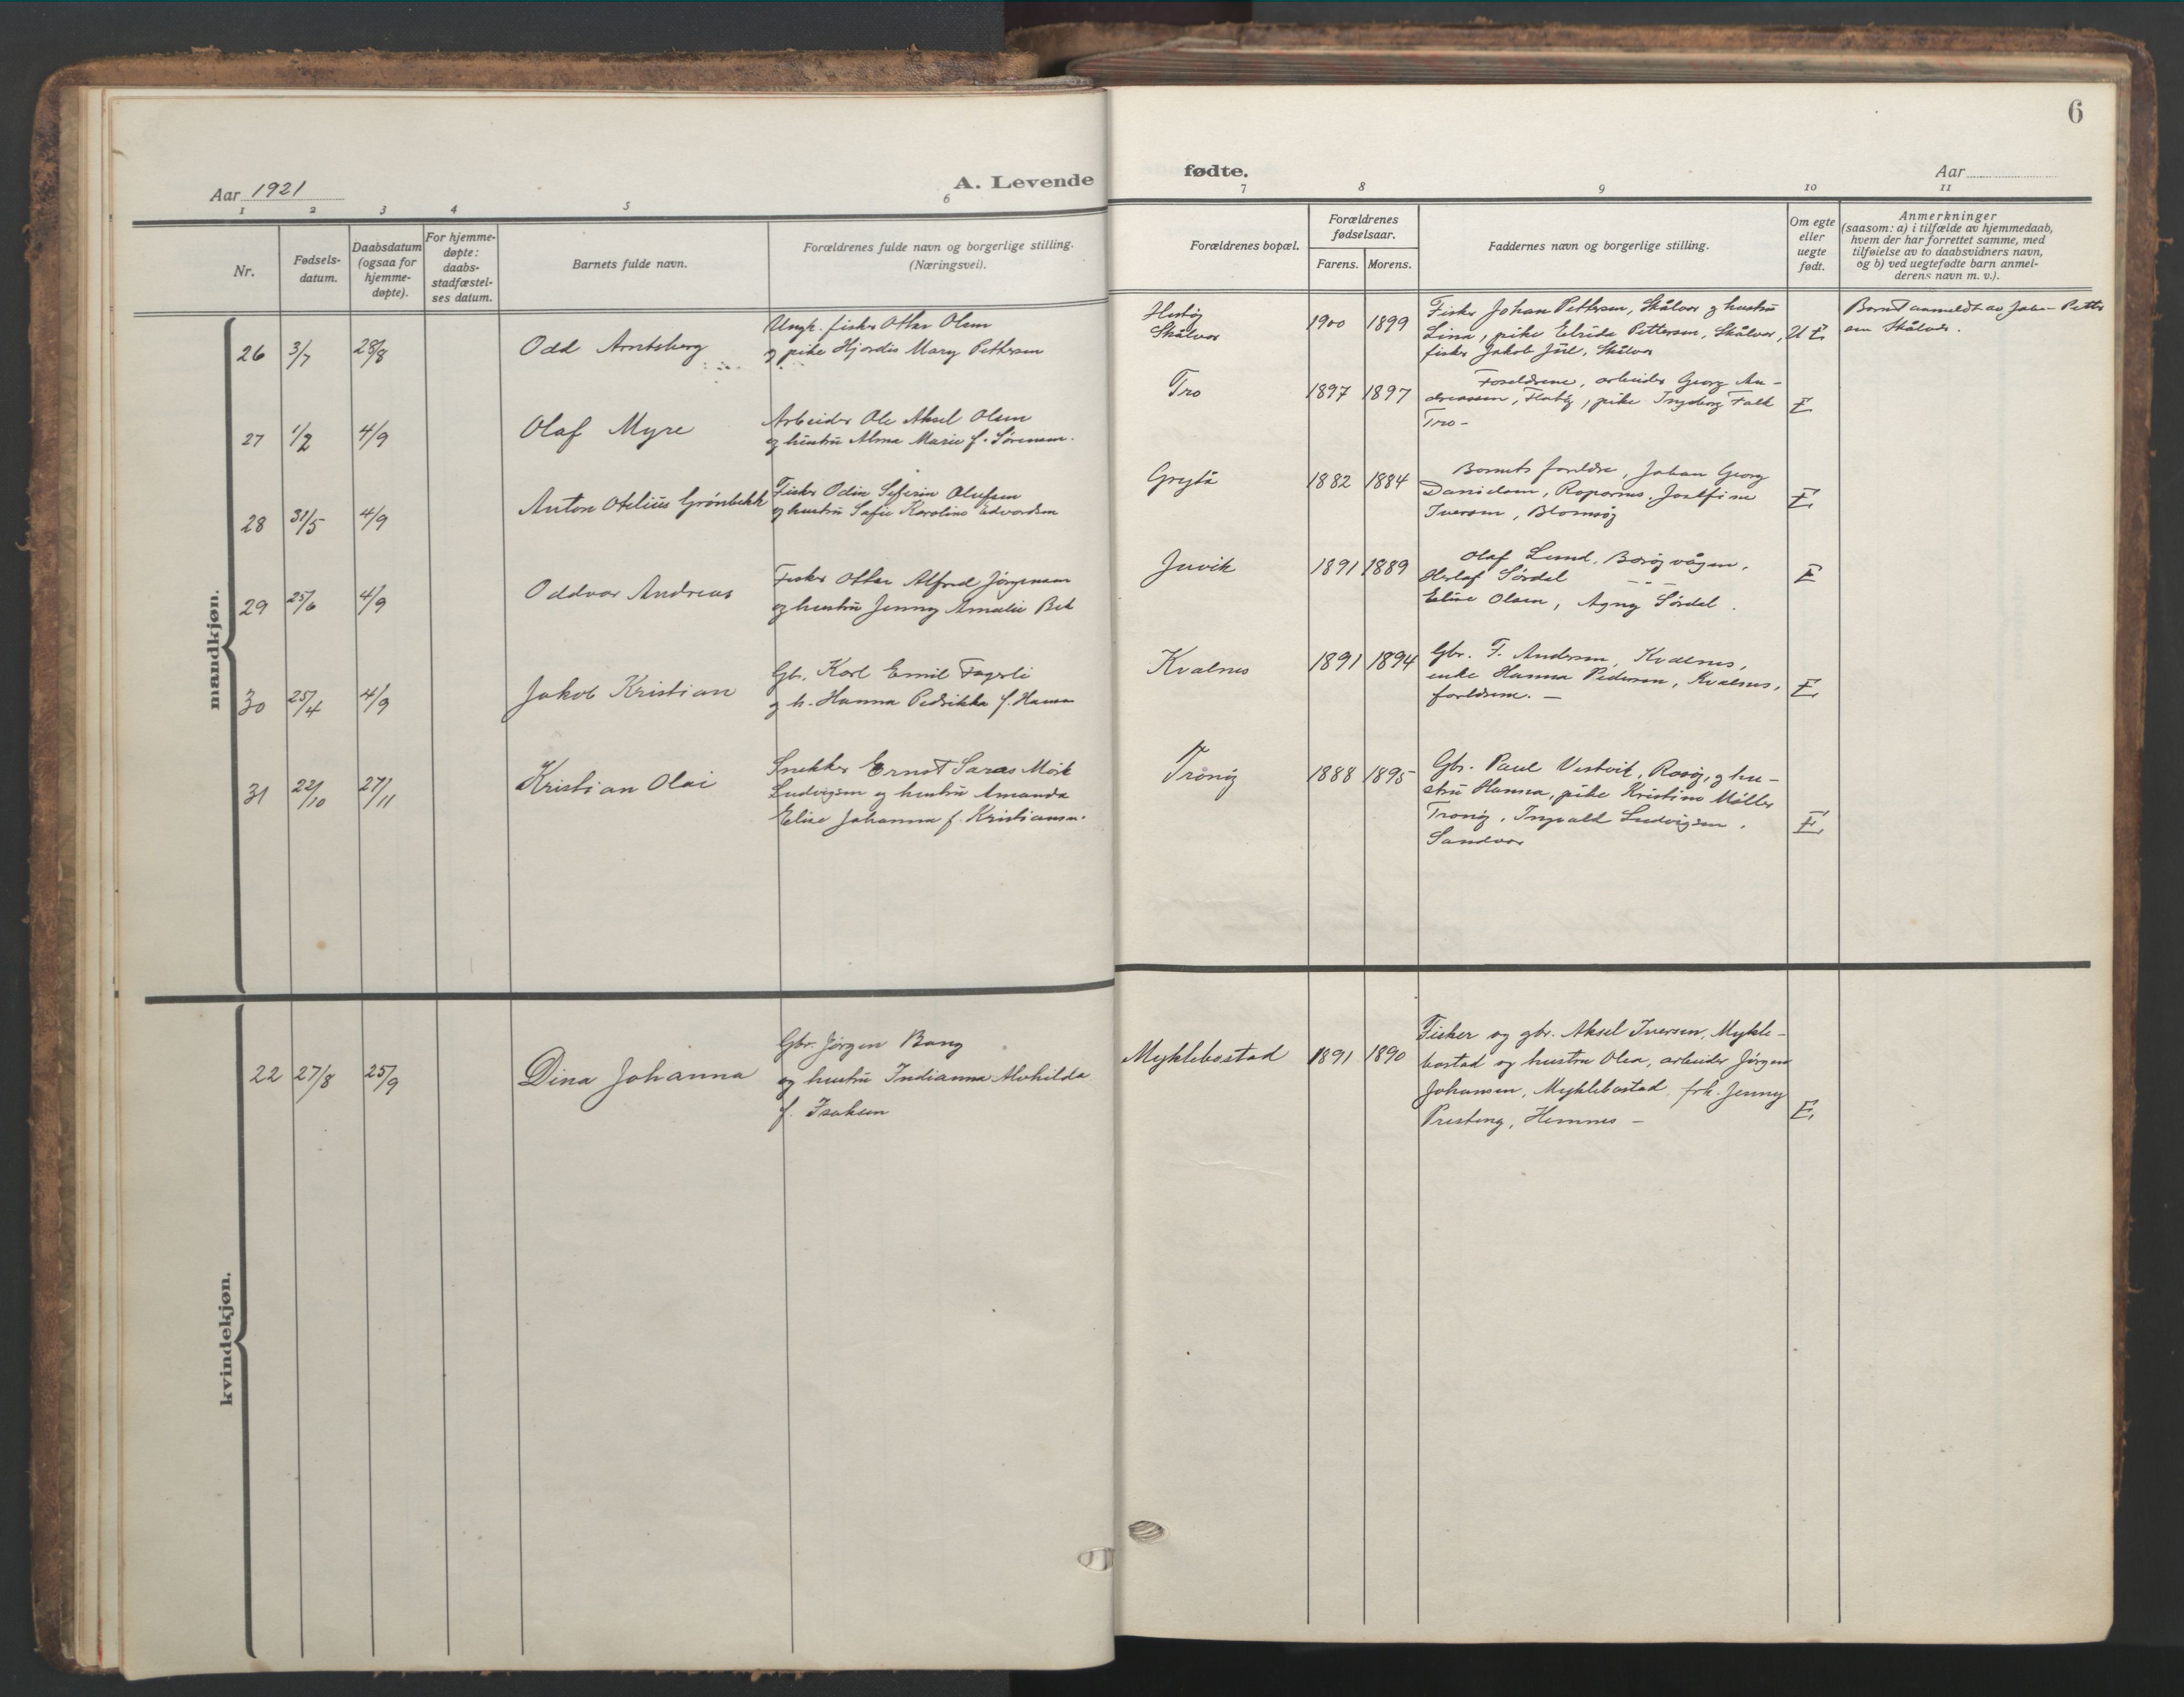 6
Aar 1921
A. Levende
fødte.
Aar
1
2
3
4
5
6
7
8
9
10
11
Nr.
Fødsels-
datum.
Daabsdatum
(ogsaa for
hjemme-
døpte).
For hjemme-
døpte:
daabs-
stadfæstel-
ses datum.
Barnets fulde navn.
Forældrenes fulde navn og borgerlige stilling.
(Næringsvei).
Forældrenes bopæl.
Forældrenes
fødselsaar.
Farens.
Morens.
Faddernes navn og borgerlige stilling.
Om egte
eller
uegte
født.
Anmerkninger
(saasom: a) i tilfælde av hjemmedaab,
hvem der har forrettet samme, med
tilføielse av to daabsvidners navn,
og b) ved uegtefødte barn anmel-
derens navn m. v.).
mandkjøn.
26 3/7 28/8
Odd Arntsberg
Ungk. fisker Ottar Olsen
og pike Hjordis Mary Pettersen
Skålvær
1900 1899
Fisker Johan Pettersen, Skålvær og hustru
Lina, pike Elride Pettersen, Skålvær,
fisker Jakob Juul, Skålvær
U E
Barnet anmeldt av Joh. Petter
sen Skålvær.
27 1/2 4/9
Olaf Myre
Arbeider Ole Aksel Olsen
og hustru Alma Marie f. Sørensen.
Tro
1897 1897
Foreldrene, arbeider Georg An-
dreassen, Flatøy, pike Ingeborg Falk
Tro -
E
28 31/5 4/9
Anton Otelius Grønbekk
Fisker Odin Seferin Olufsen
og hustru Sofie Karoline Edvardsen
Grytå
1882 1884
Barnets foreldre, Johan Georg
Danielsen, Roparnes, Josefine
Iversen, Blomsøy
E
29 25/6 4/9
Oddvar Andreas
Fisker Ottar Alfred Jørgensen
og hustru Jenny Amalie Bek
Juvik
1891 1889
Olaf Lund, Barøyvågen,
Herlof Sørdal - " -
Elise Olsen, Agny Sørdal.
E
30 25/4 4/9
Jakob Kristian
Gb. Karl Emil Fagerli
og h. Hanna Pedrikka f. Hansen
Kvalnes
1891 1894
Gbr. F. Andersen, Kvalnes,
enke Hanna Pedersen, Kvalnes,
foreldrene. -
E
31 22/10 27/11
Kristian Olai
Snekker Ernst Saras Mørk
Ludvigsen og hustru Amanda
Elise Johanna f. Kristiansen.
Tronøy
1888 1895
Gbr. Paul Vestvik, Rosøy, og hu-
stru Hanna, pike Kristine Møller
Tronøy, Ingvald Ludvigsen,
Sandvær
E
kvindekjøn.
22 27/8 25/9
Dina Johanna
Gbr. Jørgen Bang
og hustru Indianna Alvhilda
f. Isaksen
Myklebostad
1891 1890
Fisker og gbr. Aksel Iversen, Mykle-
bostad og hustru Olea, arbeider Jørgen
Johansen, Myklebostad, frk. Jenny
Presteng, Hemnes -
E